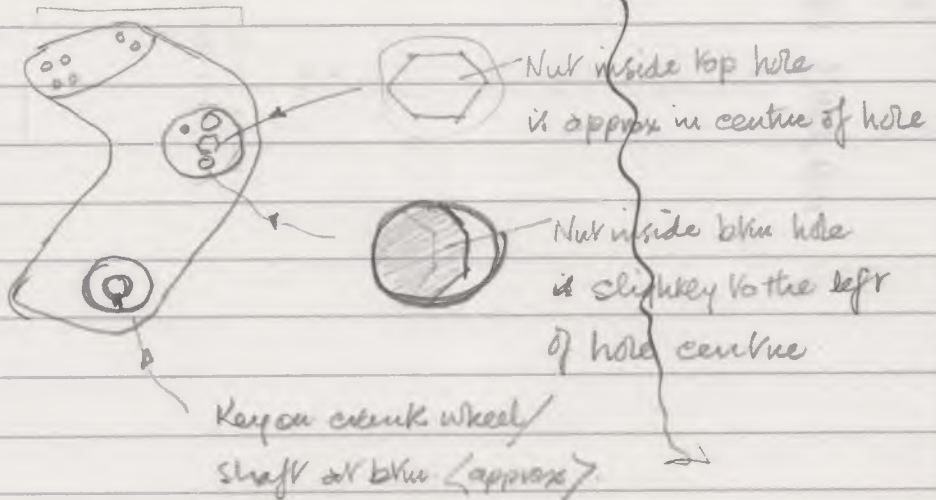 Nut inside top hole
is approx in centre of hole
Nut inside btm hole
is slightly to the left
of hole centre
Key on crank wheel/
shaft at btm <approx>.